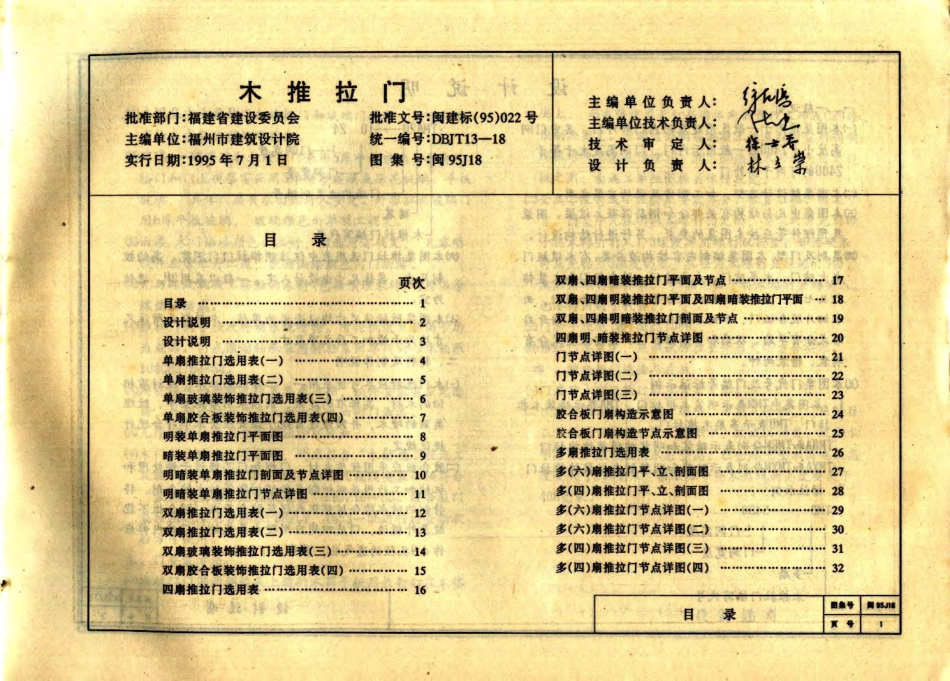 木推拉门
批准部门:福建省建设委员会
主编单位:福州市建筑设计院
实行日期:1995年7月1日
批准文号:闽建标(95)022号
统一编号:DBJT13—18
图集号:闽95J18
主编单位负责人:
主编单位技术负责人:
技术审定人:
设计负责人:
目录
页次
目录 …… 1
设计说明 …… 2
设计说明 …… 3
单扇推拉门选用表(一) …… 4
单扇推拉门选用表(二) …… 5
单扇玻璃装饰推拉门选用表(三) …… 6
单扇胶合板装饰推拉门选用表(四) …… 7
明装单扇推拉门平面图 …… 8
暗装单扇推拉门平面图 …… 9
明暗装单扇推拉门剖面及节点详图 …… 10
明暗装单扇推拉门节点详图 …… 11
双扇推拉门选用表(一) …… 12
双扇推拉门选用表(二) …… 13
双扇玻璃装饰推拉门选用表(三) …… 14
双扇胶合板装饰推拉门选用表(四) …… 15
四扇推拉门选用表 …… 16
双扇、四扇暗装推拉门平面及节点 …… 17
双扇、四扇明装推拉门平面及四扇暗装推拉门平面 … 18
双扇、四扇明暗装推拉门剖面及节点 …… 19
四扇明、暗装推拉门节点详图 …… 20
门节点详图(一) …… 21
门节点详图(二) …… 22
门节点详图(三) …… 23
胶合板门扇构造示意图 …… 24
胶合板门扇构造节点示意图 …… 25
多扇推拉门选用表 …… 26
多(六)扇推拉门平、立、剖面图 …… 27
多(四)扇推拉门平、立、剖面图 …… 28
多(六)扇推拉门节点详图(一) …… 29
多(六)扇推拉门节点详图(二) …… 30
多(四)扇推拉门节点详图(三) …… 31
多(四)扇推拉门节点详图(四) …… 32
目录
图集号 闽95J18
页号 1